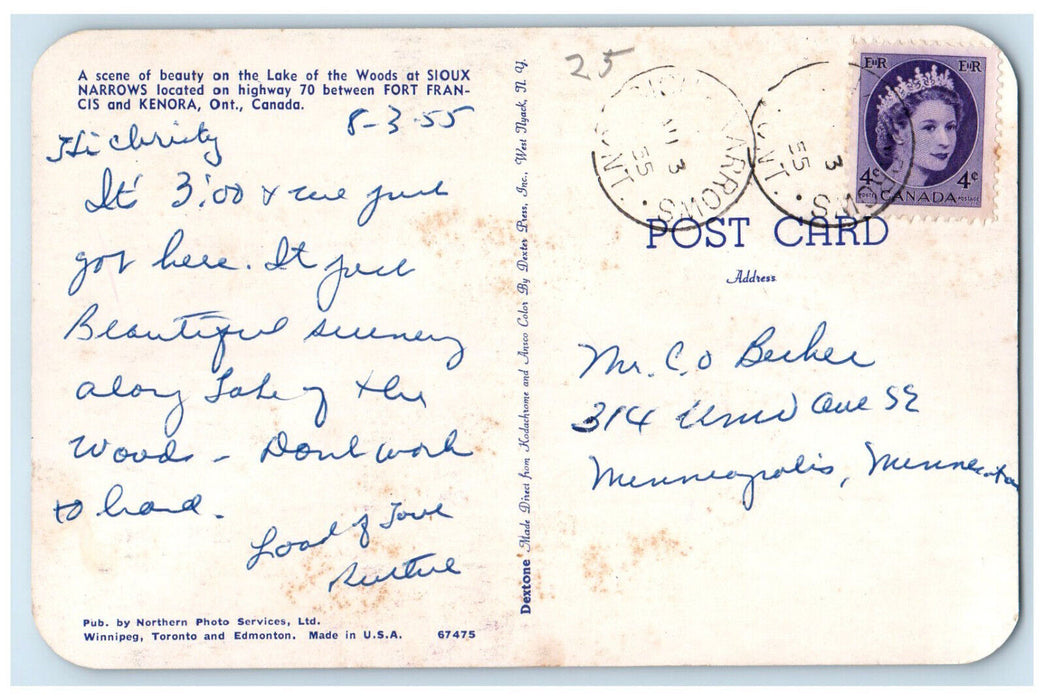 A scene of beauty on the Lake of the Woods at SIOUX
NARROWS located on highway 70 between FORT FRAN-
CIS and KENORA, Ont., Canada.
8-3-55
Hi Christy
It's 3:00 & we just
got here. It just
Beautiful scenery
along Lake of the
Woods - Dont work
to hard.
Load of Love
Pub. by Northern Photo Services, Ltd.
Winnipeg, Toronto and Edmonton. Made in U.S.A. 67475
Dextone Made Direct from Kodachrome and Ansco Color By Dexter Press, Inc., West Nyack, N. Y.
25
SIOUX NARROWS
ONT.
3
55
ONT.
3
55
E II R E II R
4¢ 4¢
POSTES CANADA POSTAGE
POST CARD
Address
Mr. C.O Becker
314 Ave SE
Minneapolis, Minnesota